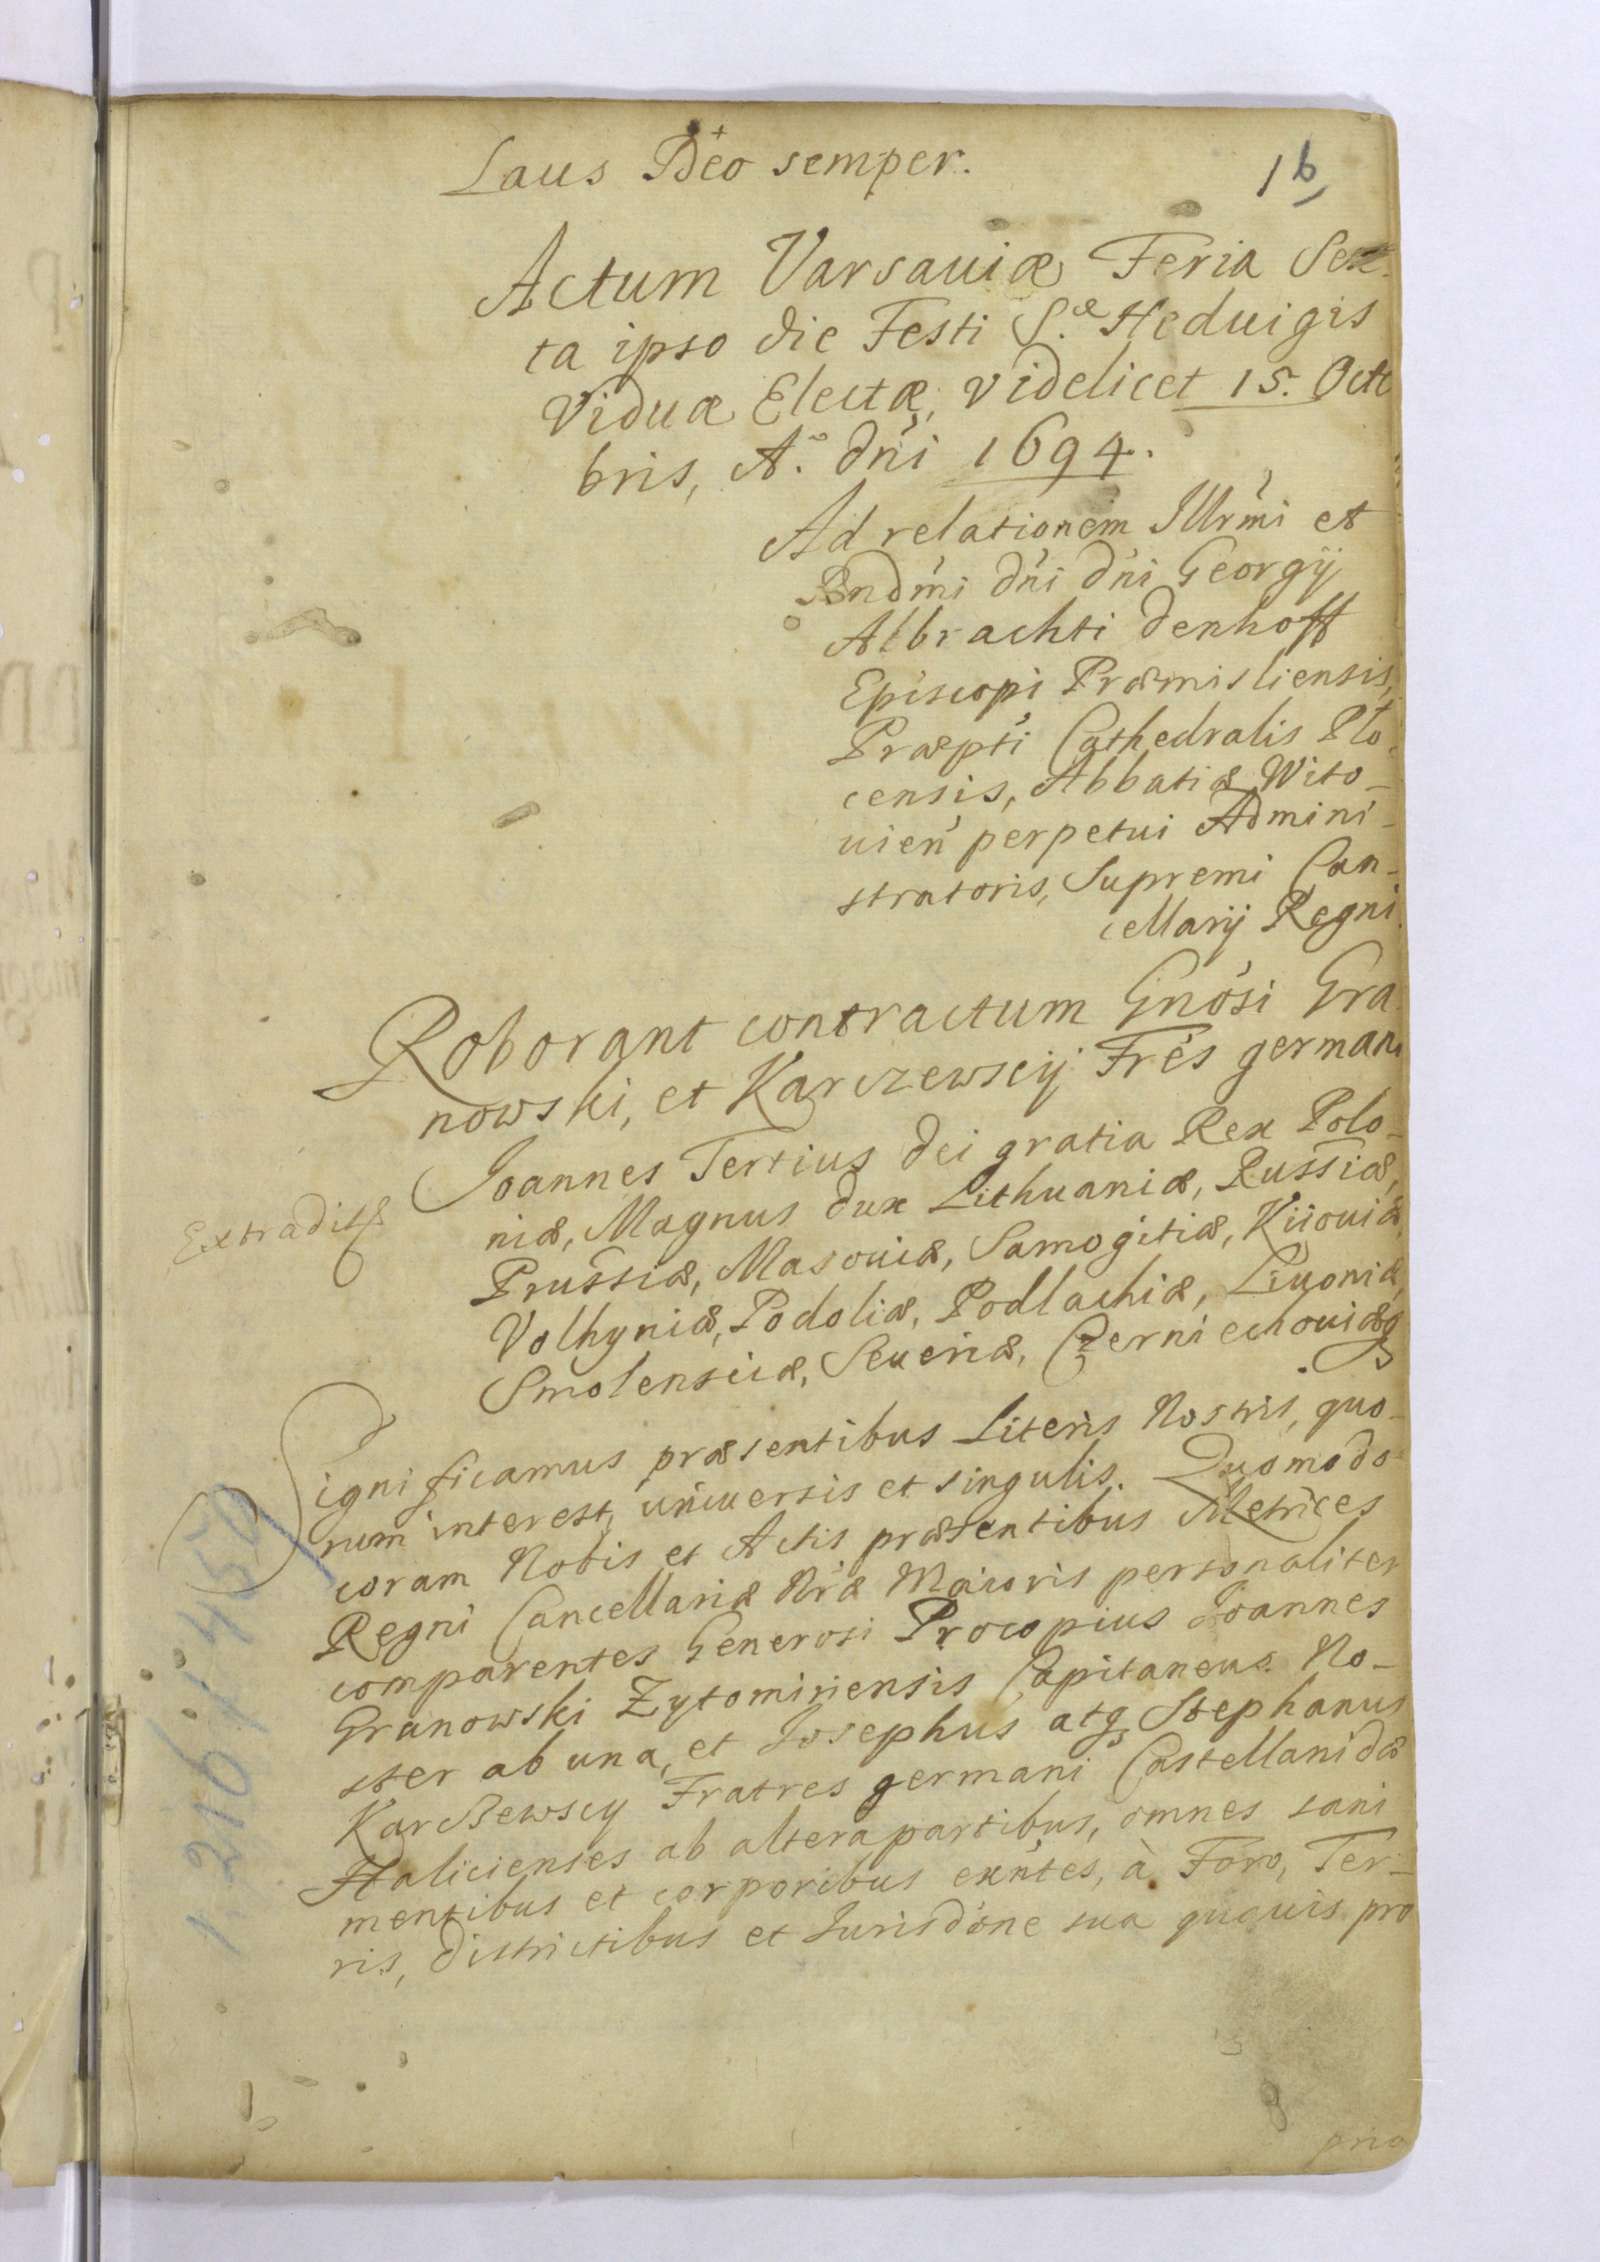 Laus Deo semper.
16
Actum Varsauiæ Feria Sex-
ta ipso die Festi S.æ Heduigis
Viduæ Electæ, videlicet 15. Octo
bris, A.o dńi 1694.
Ad relationem Illrm̃i et
Rndm̃i dńi dńi Georgÿ
Albrachti denhoff
Episcopi Præmisliensis,
Præpti Cathedralis Plo-
censis, Abbatiæ Wito-
uień perpetui Admini-
stratoris, Supremi Can-
cellarÿ Regni
Roborant contractum Gnósi Gra
nowski, et Karczewscÿ Frés germani
Joannes Tertius dei gratia Rex Polo-
niæ, Magnus dux Lithuaniæ, Russiæ,
Extradit
Prussiæ, Masouiæ, Samogitiæ, Kijouiæ,
Volhyniæ, Podoliæ, Podlachiæ, Liuoniæ,
Smolensciæ, Seueriæ, Czerniechouiæq
Significamus præsentibus Literis Nostris, quo-
rum interest, uniuersis et singulis. Quomodo
coram Nobis et Actis præsentibus Metrices
Regni Cancellariæ Nræ Maioris personaliter
comparentes Generosi Procopius Joannes
Granowski Zytomiriensis Capitaneus No-
ster ab una, et Josephus atq Stephanus
Karczewscy Fratres germani Castellanidæ
Halicienses ab altera partibus, omnes sani
mentibus et corporibus exńtes, à Foro, Ter-
ris, districtibus et Jurisdóne sua quauis pro
prio